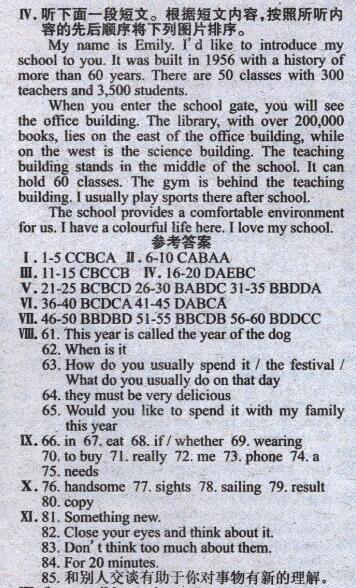 Ⅳ. 听下面一段短文。根据短文内容,按照所听内
容的先后顺序将下列图片排序。
My name is Emily. I'd like to introduce my
school to you. It was built in 1956 with a history of
more than 60 years. There are 50 classes with 300
teachers and 3,500 students.
When you enter the school gate, you will see
the office building. The library, with over 200,000
books, lies on the east of the office building, while
on the west is the science building. The teaching
building stands in the middle of the school. It can
hold 60 classes. The gym is behind the teaching
building. I usually play sports there after school.
The school provides a comfortable environment
for us. I have a colourful life here. I love my school.
参考答案
Ⅰ. 1-5 CCBCA Ⅱ. 6-10 CABAA
Ⅲ. 11-15 CBCCB Ⅳ. 16-20 DAEBC
Ⅴ. 21-25 BCBCD 26-30 BABDC 31-35 BBDDA
Ⅵ. 36-40 BCDCA 41-45 DABCA
Ⅶ. 46-50 BBDBD 51-55 BBCDB 56-60 BDDCC
Ⅷ. 61. This year is called the year of the dog
62. When is it
63. How do you usually spend it / the festival /
What do you usually do on that day
64. they must be very delicious
65. Would you like to spend it with my family
this year
Ⅸ. 66. in 67. eat 68. if / whether 69. wearing
70. to buy 71. really 72. me 73. phone 74. a
75. needs
Ⅹ. 76. handsome 77. sights 78. sailing 79. result
80. copy
Ⅺ. 81. Something new.
82. Close your eyes and think about it.
83. Don't think too much about them.
84. For 20 minutes.
85. 和别人交谈有助于你对事物有新的理解。